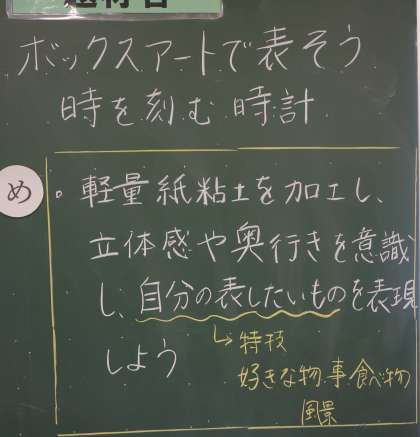 題材名
ボックスアートで表そう
時を刻む時計
め
・軽量紙粘土を加工し、
立体感や奥行きを意識
し、自分の表したいものを表現
しよう
↳特技
好きな物、事、食べ物
風景